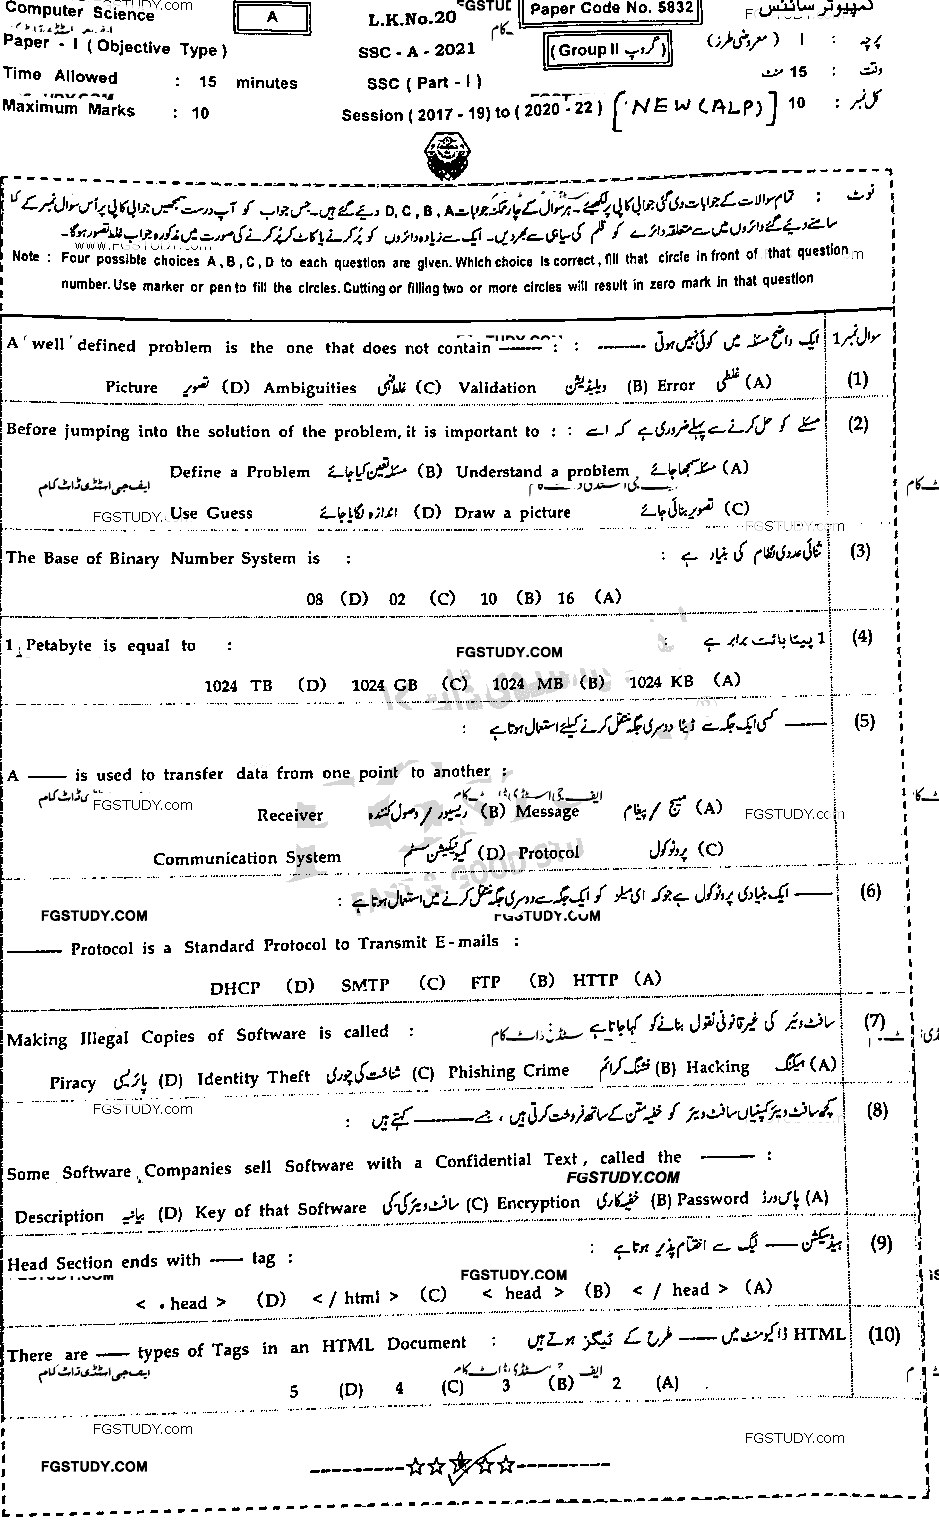 Computer Science
A
L.K.No.20
Paper Code No. 5832
کمپیوٹر سائنس
Paper - I ( Objective Type )
SSC - A - 2021
(Group II گروپ)
پرچہ : I ( معروضی طرز )
Time Allowed : 15 minutes
SSC ( Part - I )
وقت : 15 منٹ
Maximum Marks : 10
Session ( 2017 - 19) to ( 2020 - 22 ) [ NEW (ALP) ]
کل نمبر : 10
نوٹ : تمام سوالات کے جوابات دی گئی جوابی کاپی پر لکھیے۔ ہر سوال کے چار ممکنہ جوابات D, C, B, A دیے گئے ہیں۔ جس جواب کو آپ درست سمجھیں جوابی کاپی پر اُس سوال نمبر کے
سامنے دیے گئے دائروں میں سے متعلقہ دائرے کو قلم کی سیاہی سے بھر دیں۔ ایک سے زیادہ دائروں کو پُر کرنے یا کاٹ کر پُر کرنے کی صورت میں مذکورہ جواب غلط تصور ہوگا۔
Note : Four possible choices A , B , C , D to each question are given. Which choice is correct, fill that circle in front of that question
number. Use marker or pen to fill the circles. Cutting or filling two or more circles will result in zero mark in that question
سوال نمبر 1
A 'well' defined problem is the one that does not contain —— : : —— ایک واضح مسئلہ میں کوئی نہیں ہوتی
Picture تصویر (D) Ambiguities غلط فہمی (C) Validation ویلیڈیشن (B) Error غلطی (A) (1)
Before jumping into the solution of the problem, it is important to : : مسئلے کو حل کرنے سے پہلے ضروری ہے کہ اسے (2)
Define a Problem مسئلہ تعین کیا جائے (B) Understand a problem مسئلہ سمجھا جائے (A)
ایف جی اسٹڈی ڈاٹ کام
FGSTUDY. Use Guess اندازہ لگایا جائے (D) Draw a picture تصویر بنائی جائے (C)
FGSTUDY.com
The Base of Binary Number System is : : ثنائی عددی نظام کی بنیاد ہے (3)
08 (D) 02 (C) 10 (B) 16 (A)
1 Petabyte is equal to : : 1 پیٹا بائٹ برابر ہے (4)
FGSTUDY.COM
1024 TB (D) 1024 GB (C) 1024 MB (B) 1024 KB (A)
—— کسی ایک جگہ سے ڈیٹا دوسری جگہ منتقل کرنے کیلئے استعمال ہوتا ہے : (5)
A —— is used to transfer data from one point to another :
FGSTUDY.com
Receiver ریسیور / وصول کنندہ (B) Message میسج / پیغام (A)
FGSTUDY.com
Communication System کمیونیکیشن سسٹم (D) Protocol پروٹوکول (C)
—— ایک بنیادی پروٹوکول ہے جو کہ ای میلو کو ایک جگہ سے دوسری جگہ منتقل کرنے میں استعمال ہوتا ہے : (6)
FGSTUDY.COM
FGSTUDY.COM
—— Protocol is a Standard Protocol to Transmit E-mails :
DHCP (D) SMTP (C) FTP (B) HTTP (A)
Making Illegal Copies of Software is called : سافٹ ویئر کی غیر قانونی نقول بنانے کو کہا جاتا ہے (7)
Piracy پائریسی (D) Identity Theft شناخت کی چوری (C) Phishing Crime فشنگ کرائم (B) Hacking ہیکنگ (A)
FGSTUDY.com
کچھ سافٹ ویئر کمپنیاں سافٹ ویئر کو خفیہ متن کے ساتھ فروخت کرتی ہیں ، جسے —— کہتے ہیں : (8)
Some Software Companies sell Software with a Confidential Text, called the —— :
FGSTUDY.COM
Description بیانیہ (D) Key of that Software سافٹ ویئر کی کی (C) Encryption خفیہ کاری (B) Password پاس ورڈ (A)
Head Section ends with —— tag : : ہیڈ سیکشن —— ٹیگ سے اختتام پذیر ہوتا ہے (9)
FGSTUDY.COM
< . head > (D) < / html > (C) < head > (B) < / head > (A)
There are —— types of Tags in an HTML Document : HTML ڈاکومنٹ میں —— طرح کے ٹیگز ہوتے ہیں (10)
ایف جی اسٹڈی ڈاٹ کام
5 (D) 4 (C) 3 (B) 2 (A)
FGSTUDY.com
FGSTUDY.com
FGSTUDY.COM